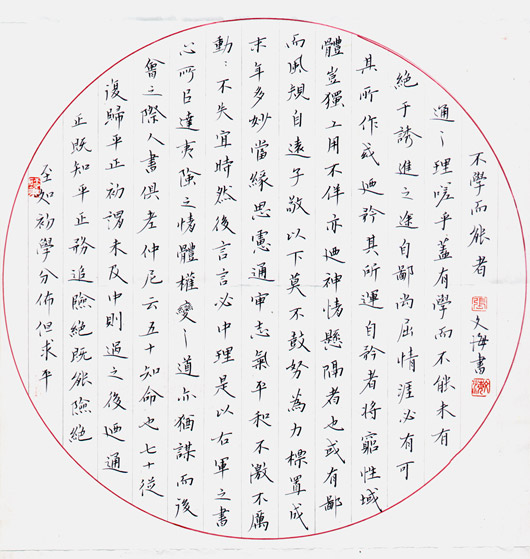 至如初學分佈但求平
正既知平正務追險絕既能險絕
復歸平正初謂未及中則過之後迺通
會之際人書俱老仲尼云五十知命也七十從
心所以達夷險之情體權變之道亦猶謀而後
動〻不失宜時然後言言必中理是以右軍之書
末年多妙當緣思慮通審志氣平和不激不厲
而風規自遠子敬以下莫不鼓努為力標置成
體豈獨工用不侔亦迺神情懸隔者也或有鄙
其所作或迺矜其所運自矜者將窮性域
絕于誘進之途自鄙尚屈情涯必有可
通之理嗟乎蓋有學而不能未有
不學而能者
文海書